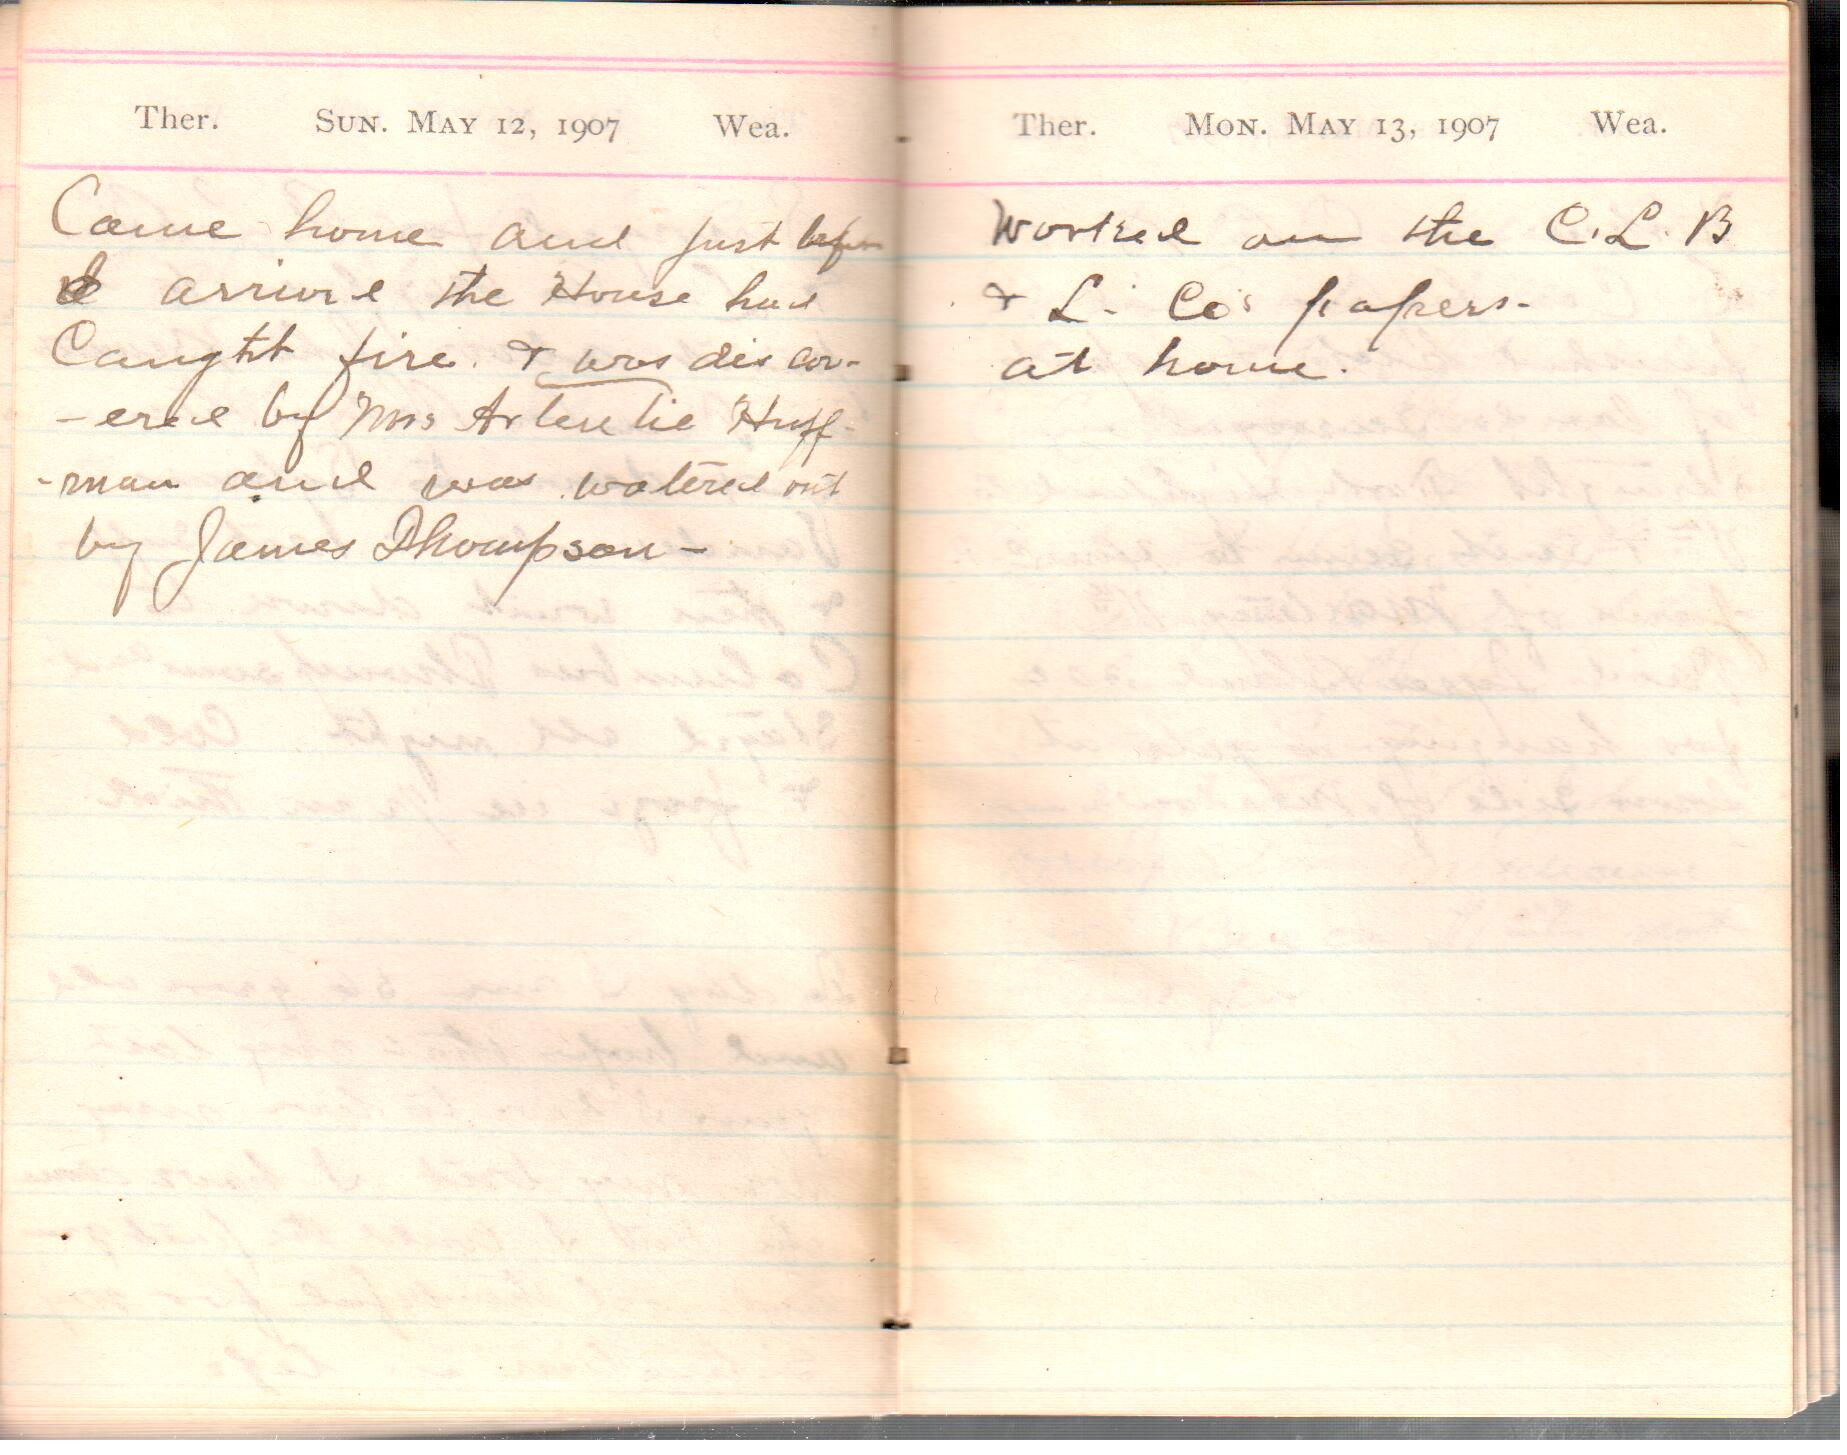 Ther. Sun. May 12, 1907 Wea.
Came home and just before
I arrived the House had
Caught fire. & was discov-
-ered by Mrs Artentie Huff-
-man and was watered out
by James Thompson -
Ther. Mon. May 13, 1907 Wea.
Worked on the C. L. B
& L. Co's papers-
at home.